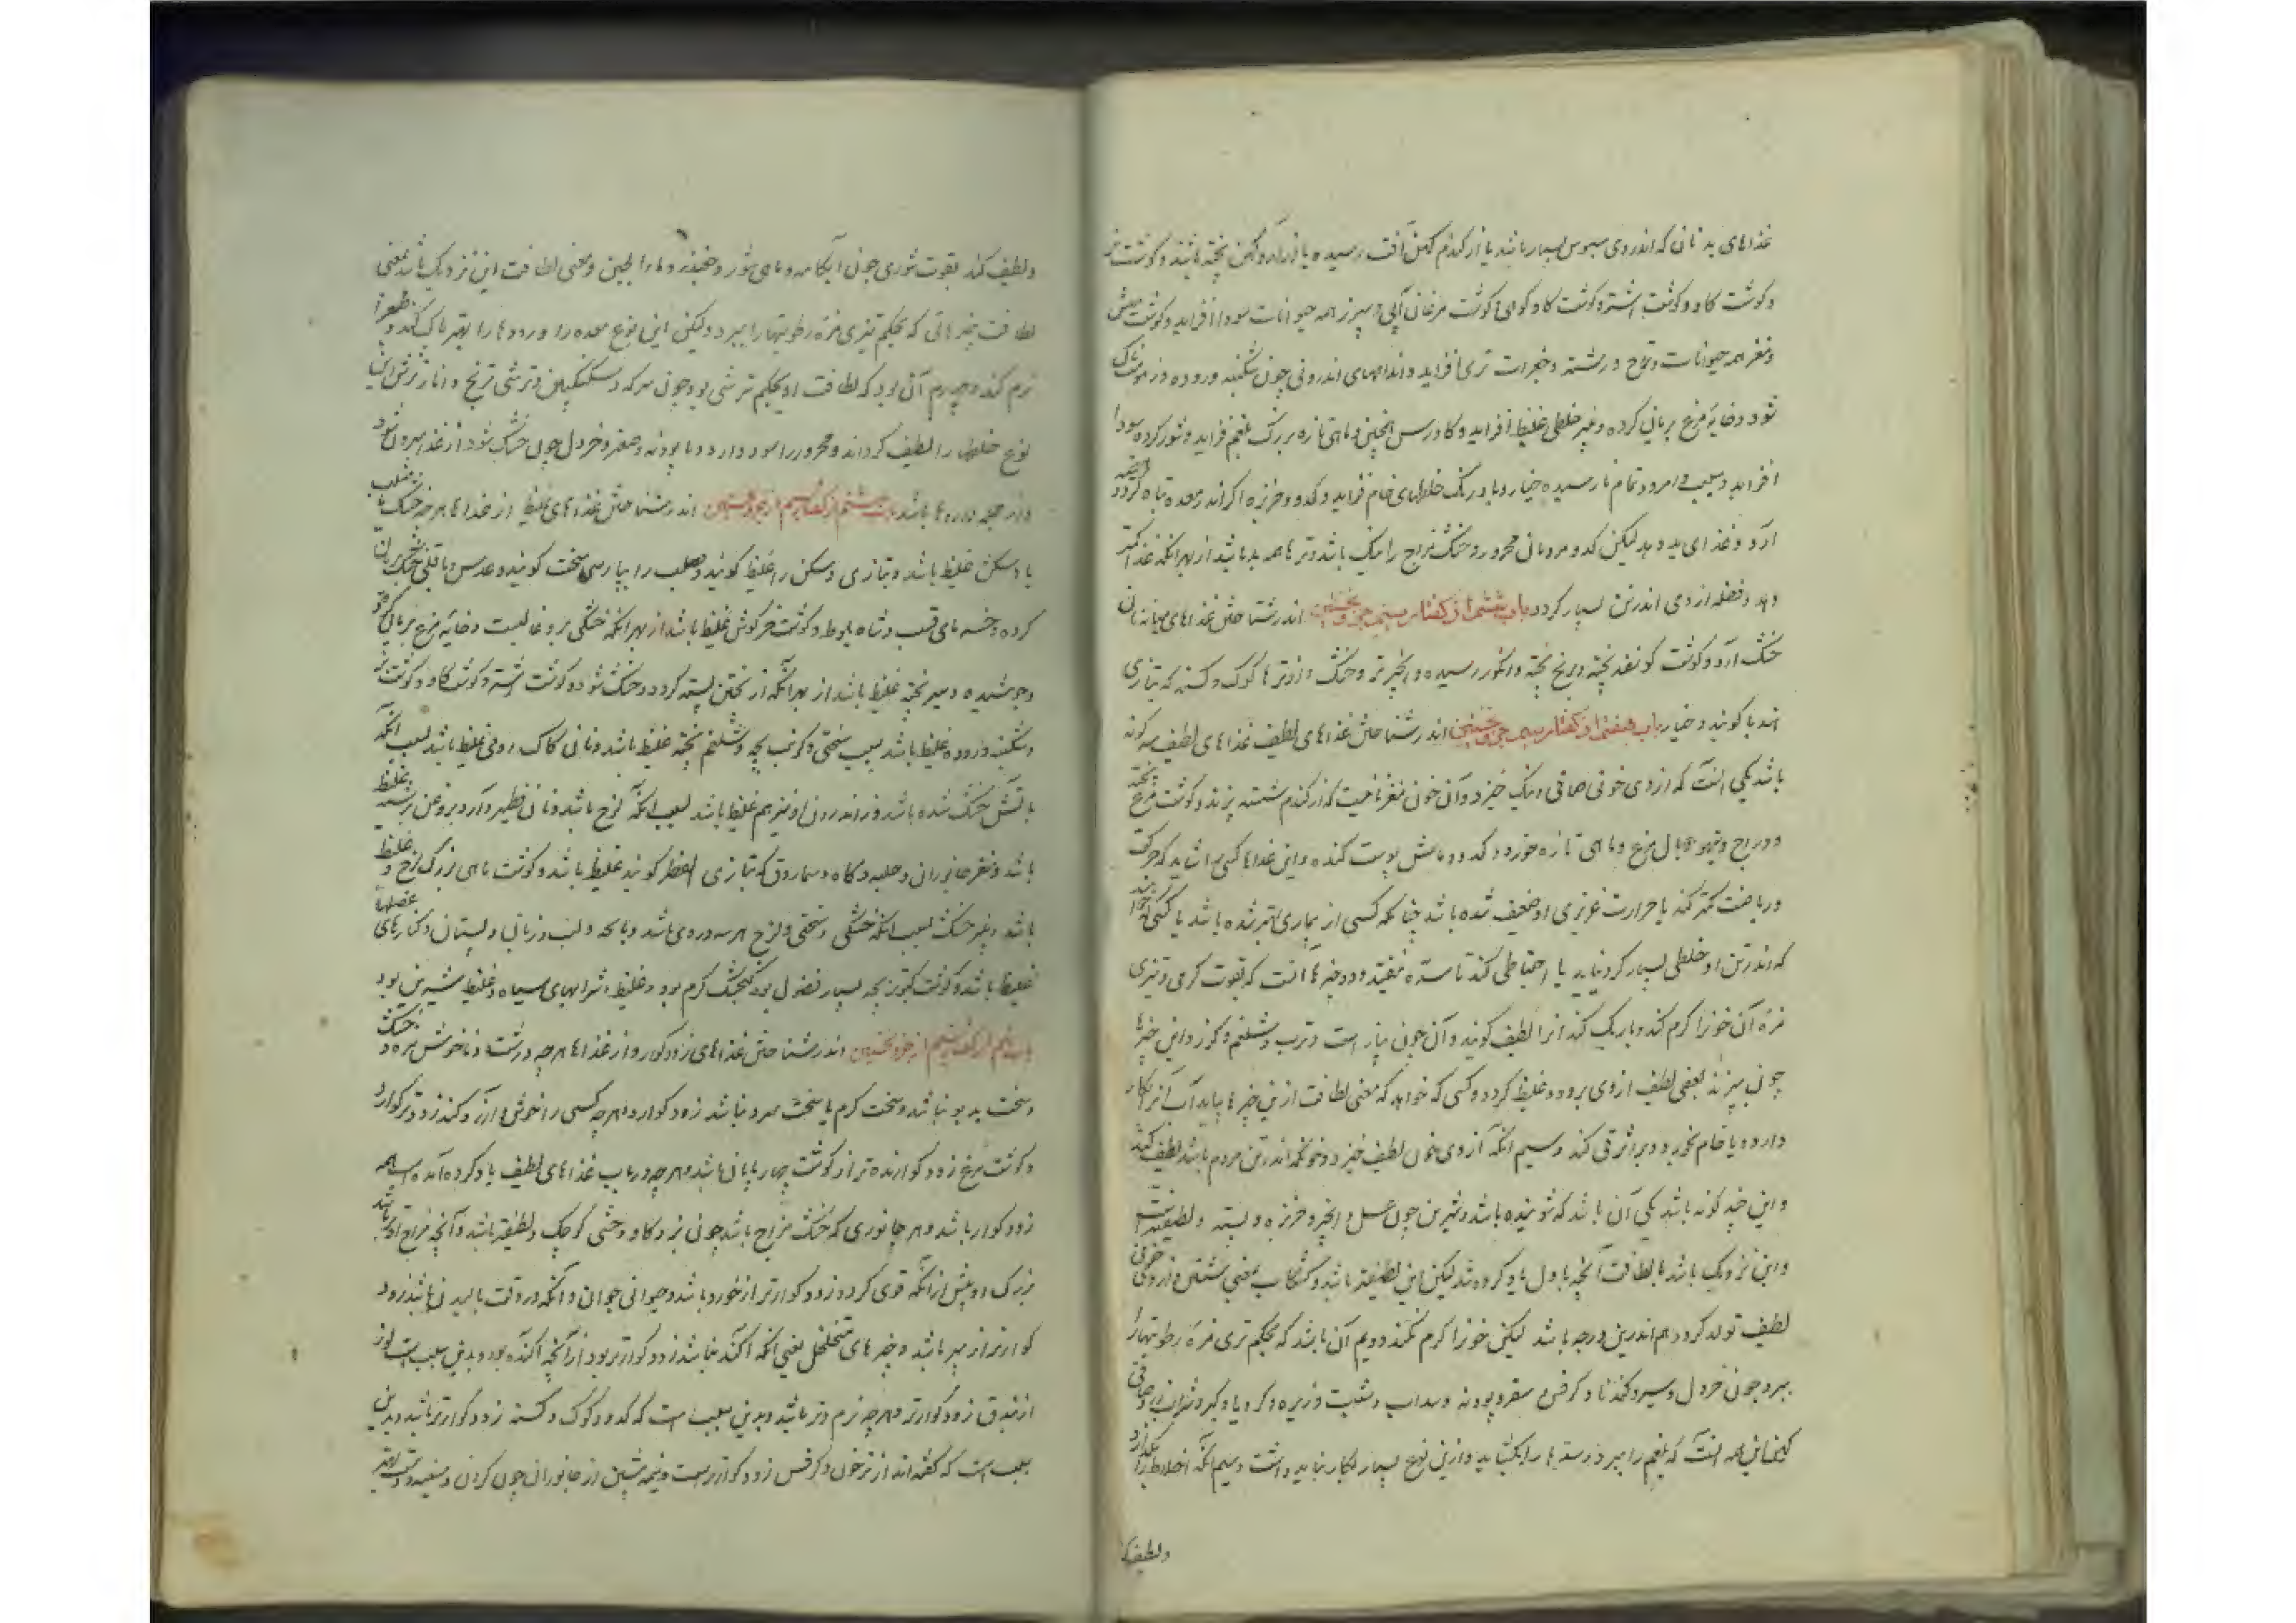 غذاهای بد نان که اندر وی سبوس بسیار باشد یا از گندم کهن آفت رسیده یا و کهن پخته باشند و گوشت
و گوشت گاو و گوشت اشتر و گوشت گاو کوهی و گوشت مرغان آبی و سپرز همه حیوانات سودا افزاید و گوشت میش
و مغز همه حیوانات و تری افزاید و اندامهای اندرونی چون شکنبه و روده
شود و خایه مرغ بریان کرده و پنیر خلطی غلیظ افزاید و کاورس همچنین و ماهی تازه بزرگ بلغم فزاید و شور کرده سودا
افزاید و سیب و امرود تمام نارسیده خیار و بادرنگ خلطهای خام فزاید و کدو و خربزه اگر اندر معده تباه گردد
آرد و غذای بد دهد لیکن کدو مردمان محرور و خشک مزاج را نیک باشد و ترها همه بد باشد از بهر آنکه غذا کمتر
دهد و فضله از وی اندر تن بسیار گردد باب ششم از گفتار سیم جزو نخستین اندر شناختن غذاهای میانه نان
خشک آرد و گوشت گوسفند پخته و برنج پخته و انگور رسیده و انجیر تر و خشک و از ترها کوک و کسنه که بتازی
هندبا گویند و خیار باب هفتم از گفتار سیم جزو نخستین اندر شناختن غذاهای لطیف غذاهای لطیف سه گونه
باشد یکی آنست که از وی خونی صافی و نیک خیزد و آن خون مغز نانیست که از گندم شسته پزند و گوشت مرغ پخته
و دراج و تیهو و بال مرغ و ماهی تازه خورد و کدو و ماش پوست کنده و این غذاها کسی را شاید که حرکت
و ریاضت کمتر کند یا حرارت غریزی او ضعیف شده باشد چنانکه کسی از بیماری بهتر شده باشد یا کسی که
که اندر تن او خلطی بسیار گرد نیاید یا احتیاطی کند تا سده نیفتد و دوم چیزها آنست که بقوت گرمی و تیزی
مزه آن خون را گرم کند و باریک کند آنرا لطیف گویند و آن چون پیاز است و ترب و شلغم و گزر و این چیزها
چون بپزند بعضی لطیف از وی برود و غلیظ گردد و کسی که خواهد که معنی لطافت ازین چیزها بیابد آب آنرا بکار
دارد و یا خام بخورد و سیم آنکه از وی خون لطیف خیزد و خونی که اندر تن مردم باشد لطیف کند
و این چند گونه باشد یکی آن باشد که شوینده باشد و شیرین چون عسل و انجیر و خربزه و پسته و لطیفتر
و این نزدیک باشد بلطافت آنچه باول یاد کرده شد لیکن این لطیفتر باشد و کشکاب بمعنی شستن و از وی خونی
لطیف تولد کردن هم اندرین درجه باشد لیکن خون را گرم نکند و دویم آن باشد که بحکم تری مزه رطوبتها را
ببرد چون خردل و سیر و گندنا و کرفس و سعتر و پودنه و سداب و شبت و زیره و کرویا و کبر و شراب صافی
کهن این همه آنست که بلغم را ببرد و سدها را بگشاید و ازین نوع بسیار بکار نباید داشت و سیم آنکه اخلاط را بگدازد
و لطیف کند
و لطیف کند بقوت شوری چون آبکامه و ماهی شور و چغندر و ماء الجبن و معنی لطافت این نزدیک باشد بمعنی
لطافت چیزهائی که بحکم تیزی مزه رطوبتها را ببرد و لیکن این نوع معده را و رودها را بهتر پاک کند و طبع را
نرم کند و چهارم آن بود که لطافت او بحکم ترشی بود چون سرکه و سکنگبین و ترشی ترنج و انار ترش این
نوع خلطها را لطیف گرداند و محرور را سود دارد و اما پودنه و سعتر و خردل چون خشک شود از غذا بیرون شود
و از جمله داروها باشد باب هشتم از گفتار سیم از جزو نخستین اندر شناختن غذاهای غلیظ از غذاها هرچه خشک یا صلب
یا دسکن غلیظ باشد و بتازی دسکن را غلیظ گویند و صلب را بپارسی سخت گویند و عدس و باقلی خشک بریان
کرده و خسته های قسب و شاه بلوط و گوشت خرگوش غلیظ باشد از بهر آنکه خشکی برو غالبست و خایه مرغ بریان کرده
و جوشیده و سیر پخته غلیظ باشد از بهر آنکه از پختن بسته گردد و خشک شود و گوشت اشتر و گوشت گاو و گوشت
و شکنبه و روده غلیظ باشد بسبب سختی و کرنب پخته و شلغم پخته غلیظ باشد و نان کاک رومی غلیظ باشد بسبب آنکه
بآتش خشک شده باشد و از اندرون او نیز هم غلیظ باشد بسبب آنکه لزج باشد و نان فطیر و آرد بروغن رسیده غلیظ
باشد و مغز جانوران و جگر و سماروق که بتازی الفطر گویند غلیظ باشد و گوشت ماهی بزرگ لزج و غلیظ
باشد و پنیر خشک بسبب آنکه خشکی و سختی و لزج هر سه در وی باشد و پاچه و لب و زبان و پستان و کنارهای عضلها
غلیظ باشد و گوشت کبوتر بچه بسیار فضول بود گنجشک گرم بود و غلیظ و شرابهای سیاه و غلیظ شیرین بود
باب نهم از گفتار سیم از جزو نخستین اندر شناختن غذاهای زودگوار و از غذاها هرچه درشت و ناخوش مزه و خشک
و سخت بد بو نباشد و سخت گرم یا سخت سرد نباشد زودگوارد و هرچه کسی را خوش آید و آرزو کند زودتر گوارد
و گوشت مرغ زود گوارنده تر از گوشت چهارپایان باشد و هرچه در باب غذاهای لطیف یاد کرده آمده است همه
زودگوار باشد و هر جانوری که خشک مزاج باشد چون بز و گاو وحشی کوچک و لطیفتر باشد و آنچه مزاج او تر باشد
بزرگ او پیش از آنکه قوی گردد زود گوارتر از خورد باشد و حیوانی جوان و آنکه در وقت بالیدن باشد زود
گوارتر از پیر باشد و چیزهای متخلخل یعنی آنکه آگنده نباشد زود گوارتر بود از آنچه آگنده بود و بدین سبب است لوز
از فندق زود گوارتر و هرچه نرم و تر باشد و بدین سبب است که کدو و کوک و کسنه زود گوارتر باشد و بدین
سبب است که گفته اند از ترخون و کرفس زود گوارتر است و نیمه پیشین از جانوران چون گردن و سینه و دست بهتر